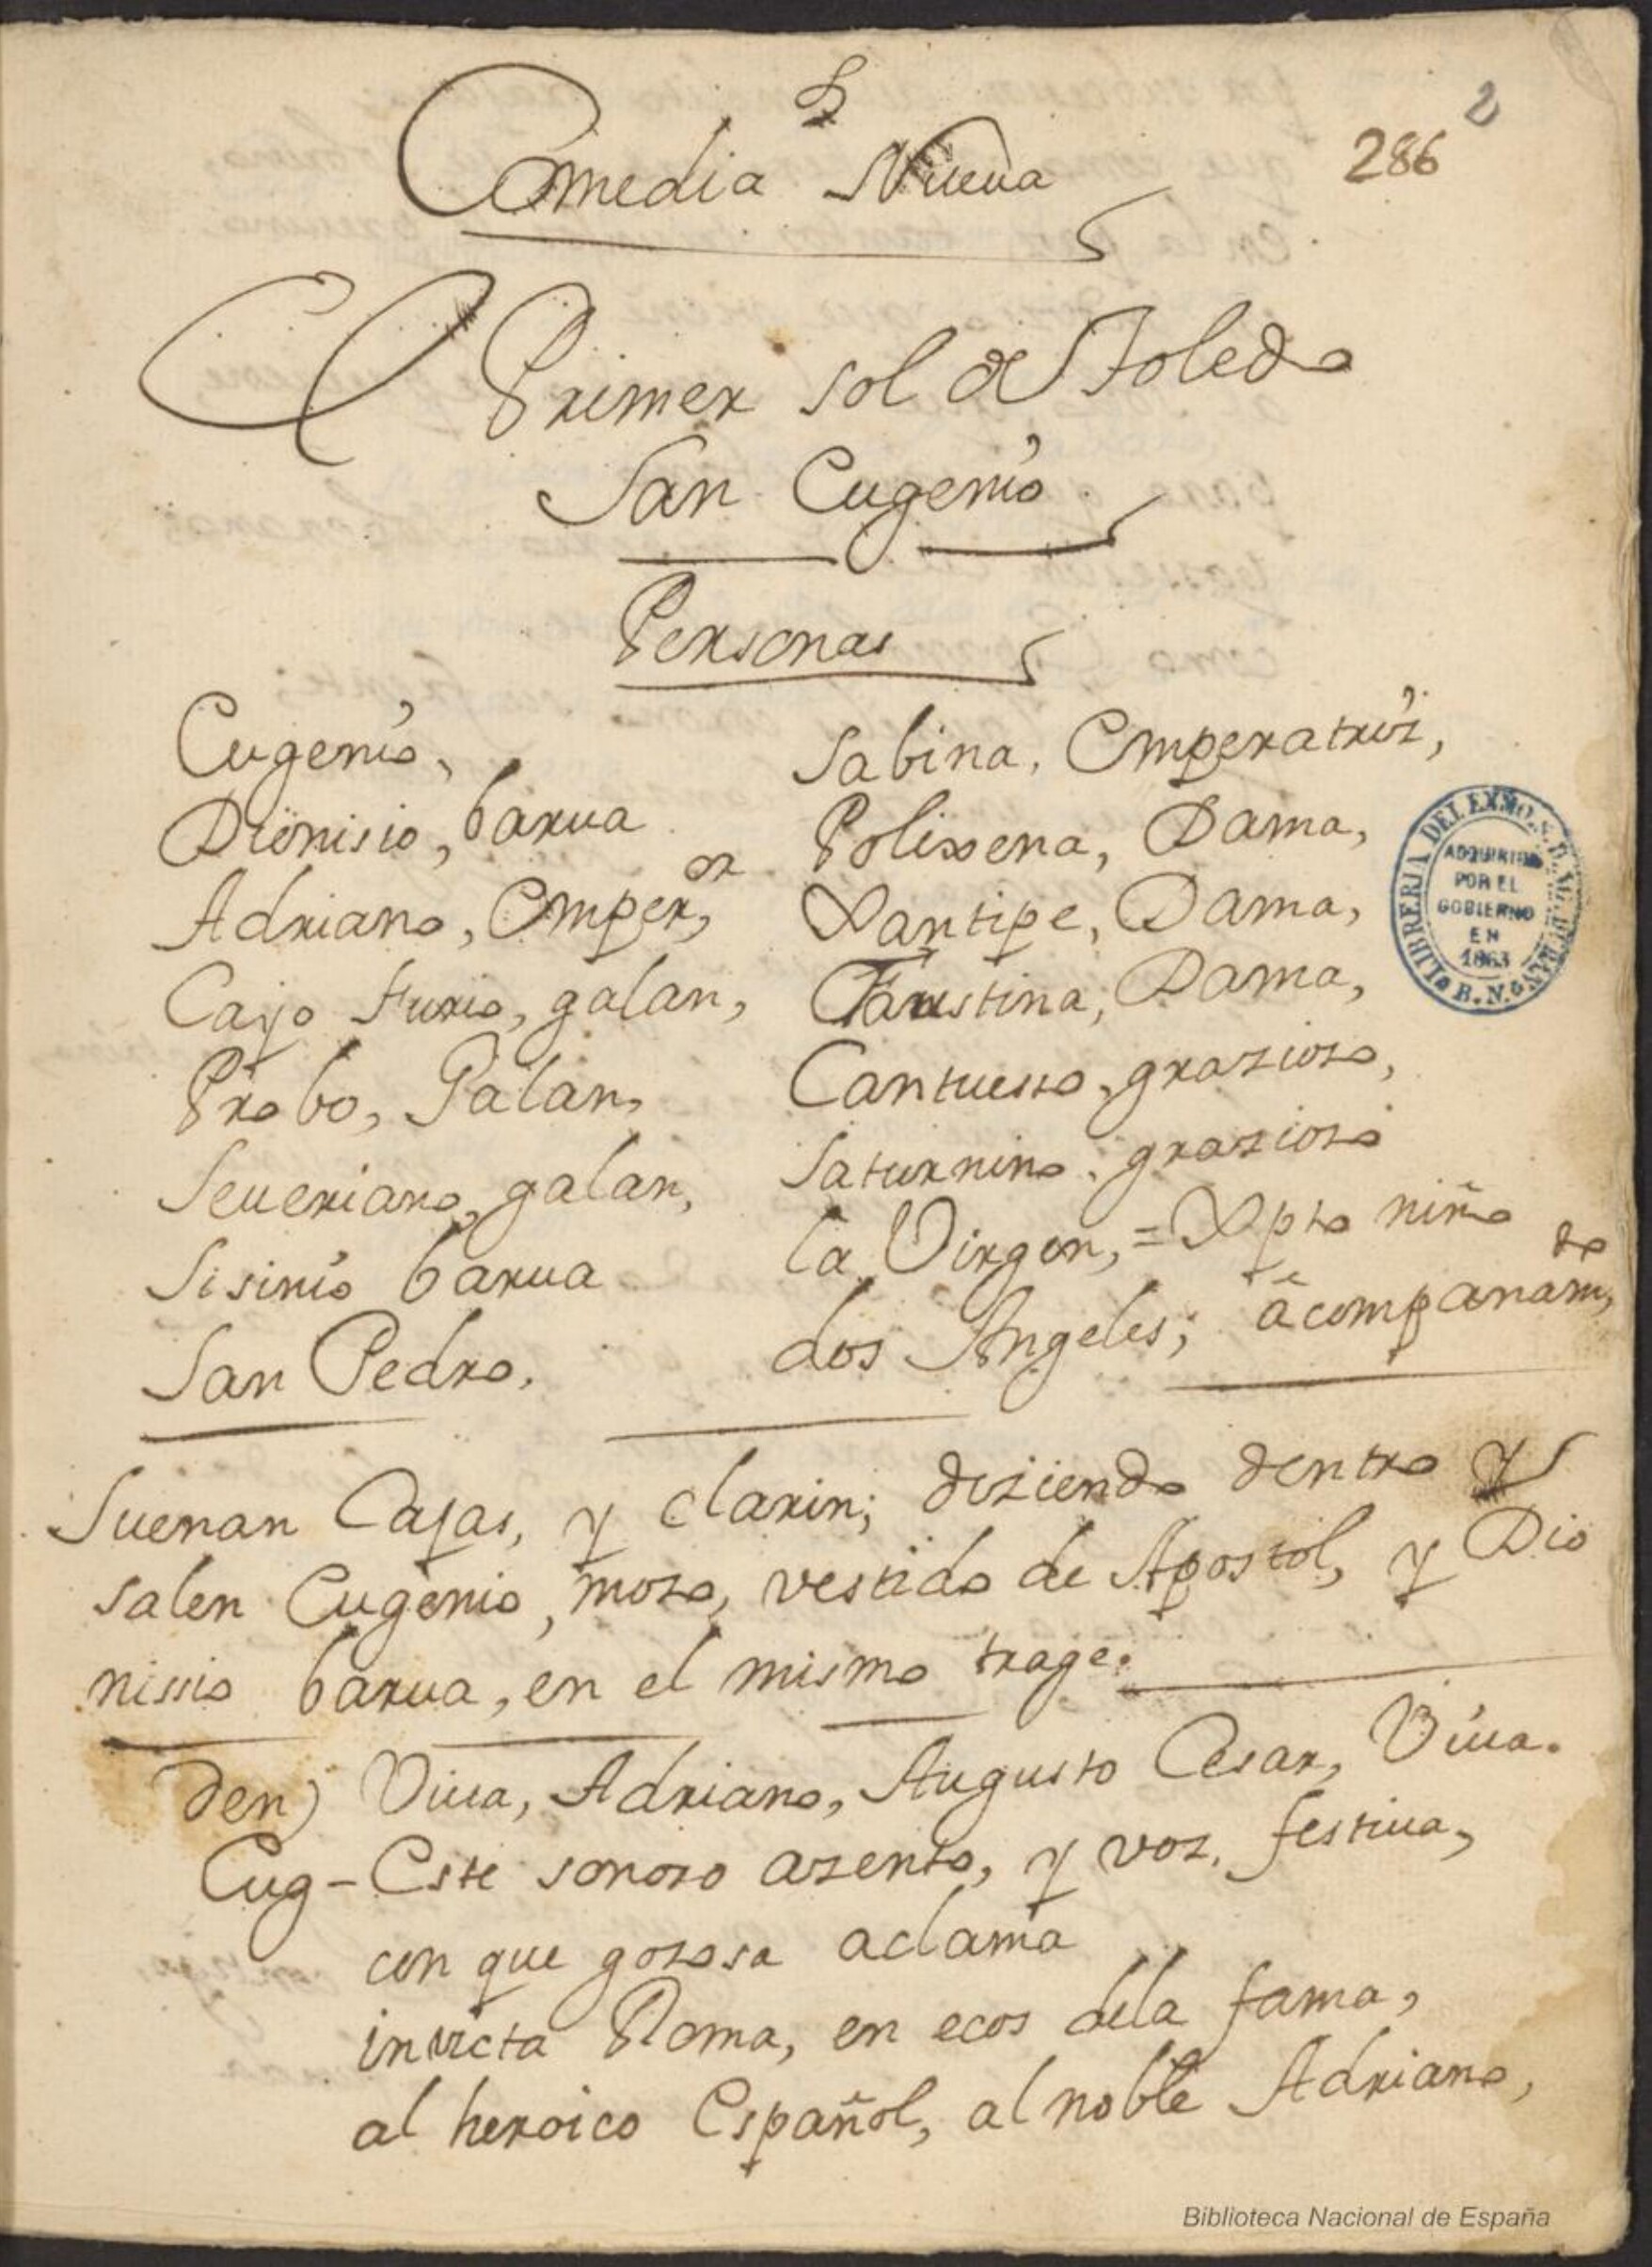 2
286
Comedia Nueua
El Primer sol de Toledo
San Eugenio
Personas
Eugenio,
Dionisio, barua
Adriano, Emper.or,
Cayo Furio, galan,
Probo, Galan,
Seueriano, galan,
Sisinio barua
San Pedro.
Sabina, Emperatriz,
Polixena, Dama,
Xantipe, Dama,
Faustina, Dama,
Cantuesso, grazioso,
Saturnino, grazioso
la Virgen, = Xpto niño
dos Angeles; acompañam.to
Suenan Cajas, y clarin; diziendo dentro y
salen Eugenio, mozo, vestido de Apostol, y Dio
nissio barua, en el mismo trage.
den) Viua, Adriano, Augusto Cesar, Viua.
Eug- Este sonoro azento, y voz, festiua,
con que gozosa aclama
invicta Roma, en ecos dela fama,
al heroico Español, al noble Adriano,
ADQUIRIDA
POR EL
GOBIERNO
EN
1863
B. N.
Biblioteca Nacional de España